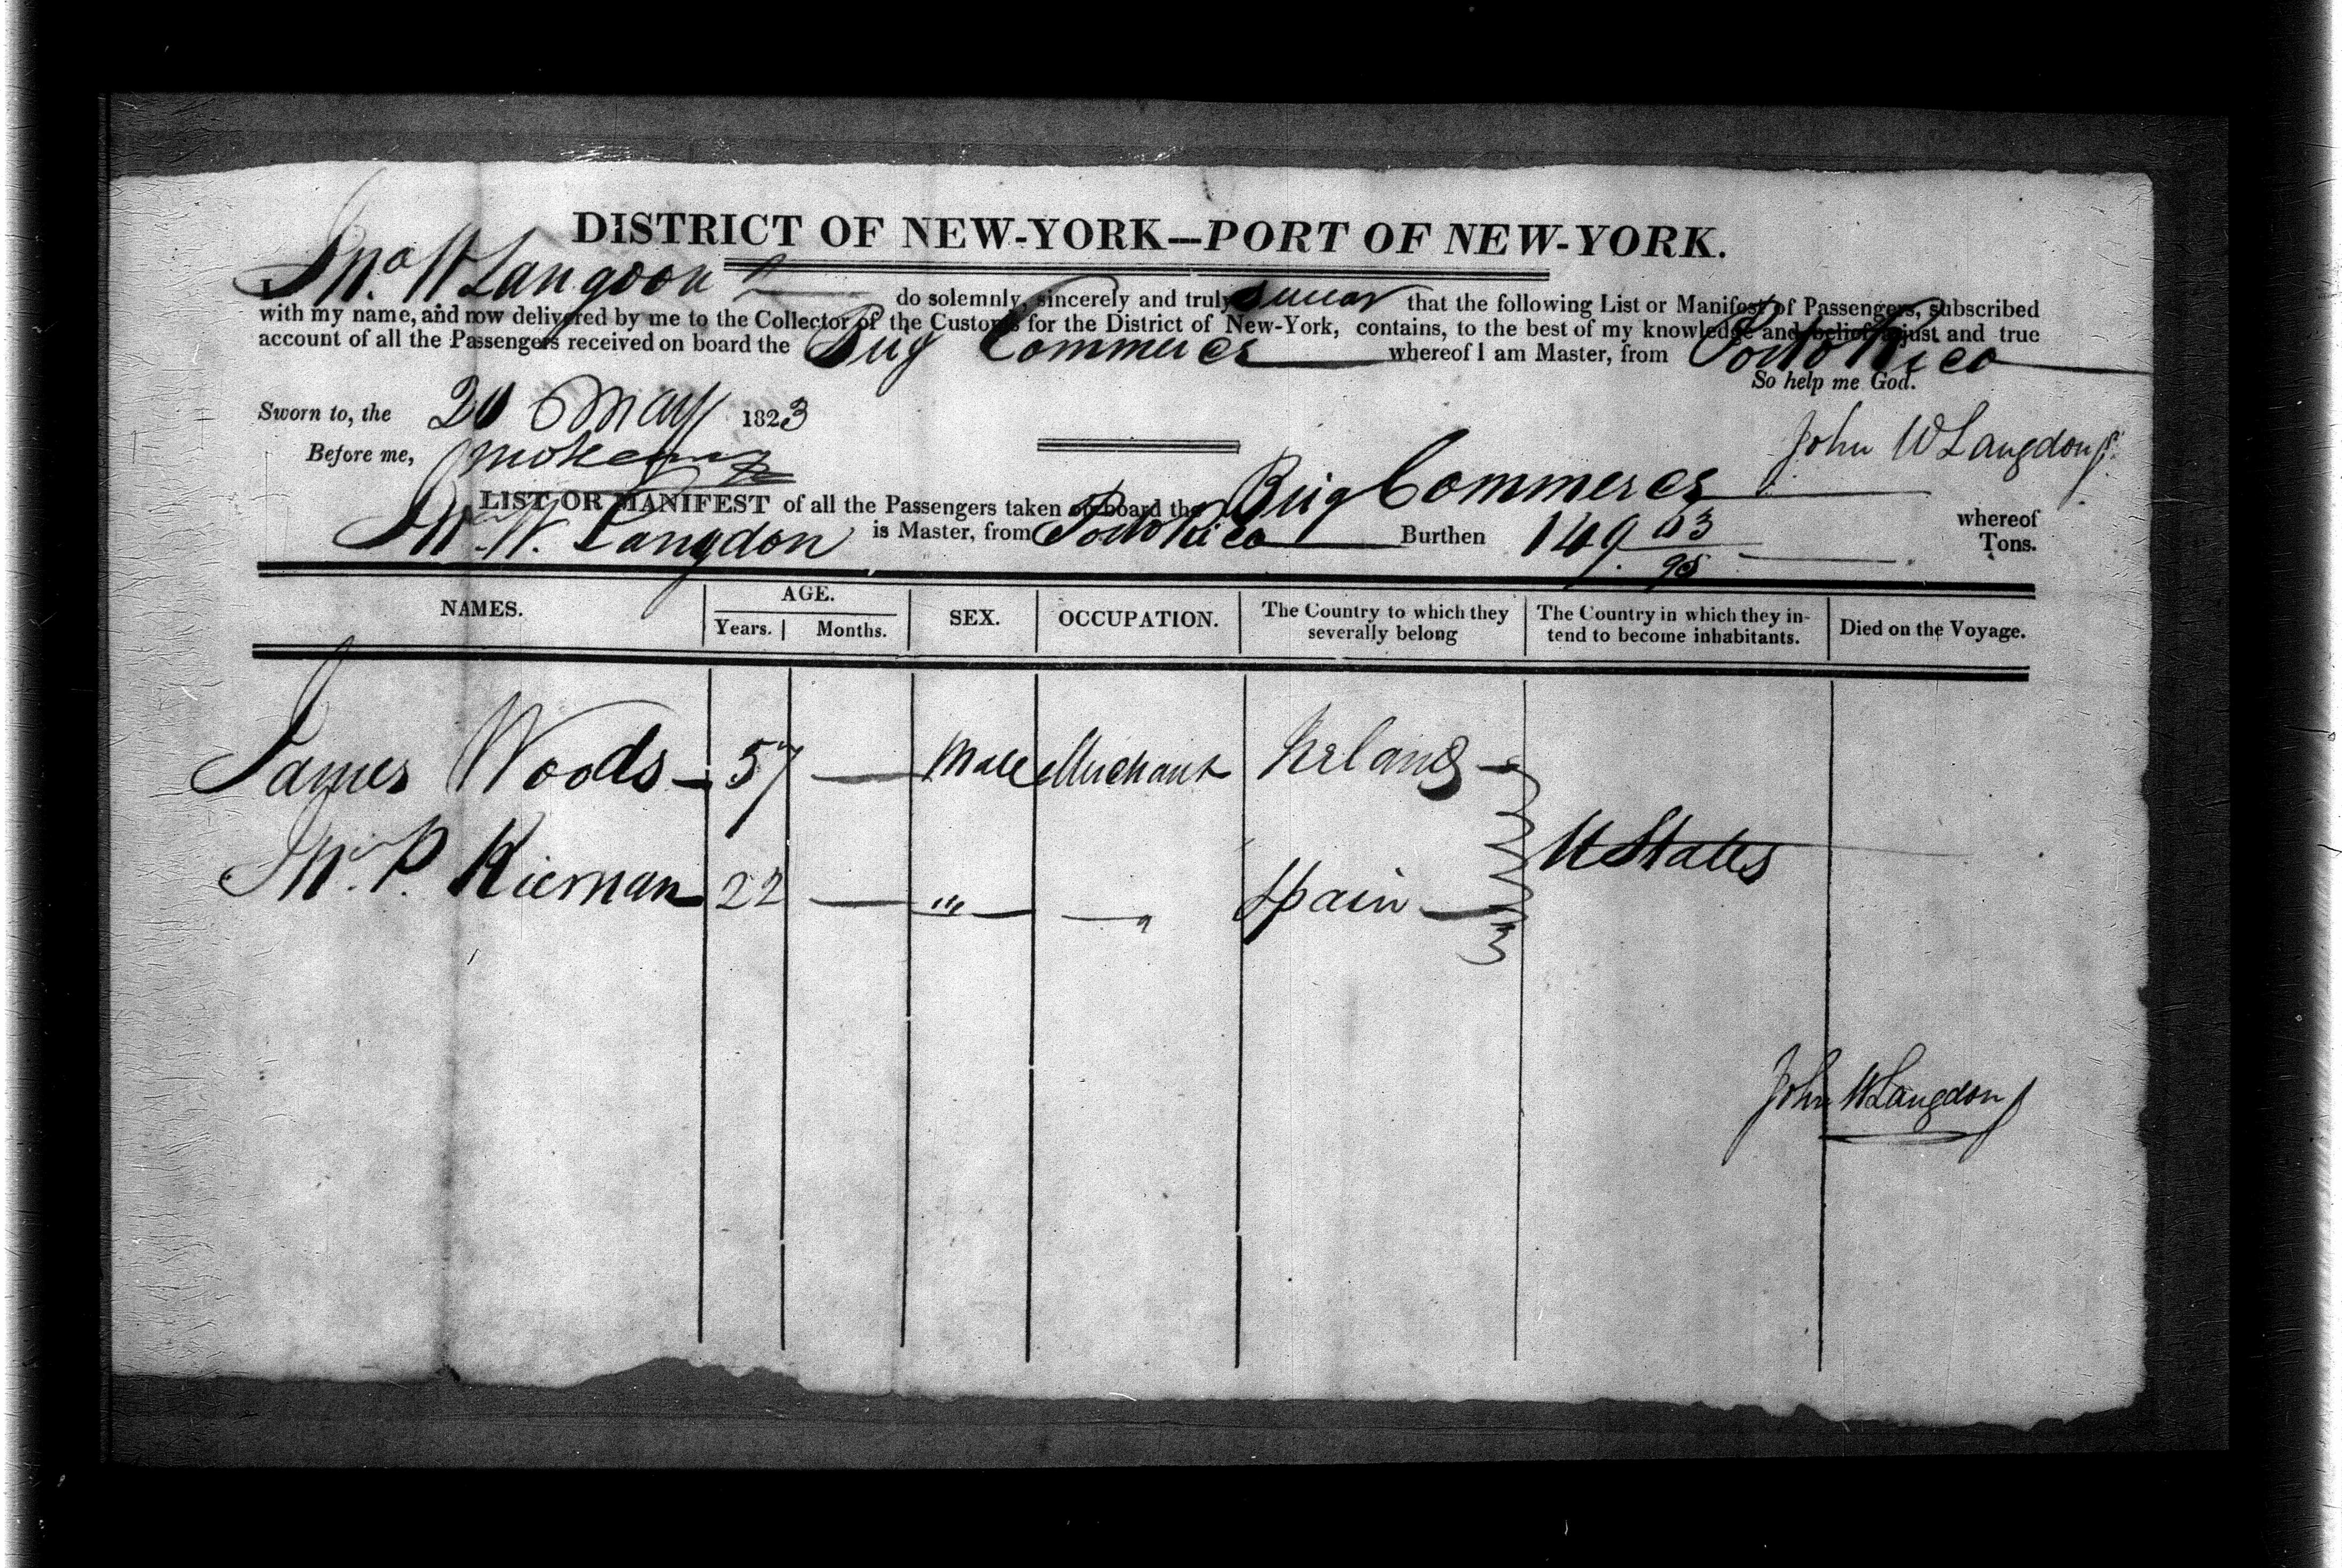 DISTRICT OF NEW-YORK—PORT OF NEW-YORK.
I, Jno. W Langdon do solemnly, sincerely and truly swear that the following List or Manifest of Passengers, subscribed
with my name, and now delivered by me to the Collector of the Customs for the District of New-York, contains, to the best of my knowledge and belief a just and true
account of all the Passengers received on board the Brig Commerce whereof I am Master, from Porto Rico
So help me God.
Sworn to, the 20 May 1823
John W Langdon
Before me,
LIST OR MANIFEST of all the Passengers taken on board the Brig Commerce whereof
Jno. W. Langdon is Master, from Porto Rico Burthen 149 03/95 Tons.
NAMES. AGE. Years. Months. SEX. OCCUPATION. The Country to which they severally belong The Country in which they intend to become inhabitants. Died on the Voyage.
James Woods 57 — Male Merchant Ireland
U States
Jno. P. Kiernan 22 — " — " Spain
John W Langdon